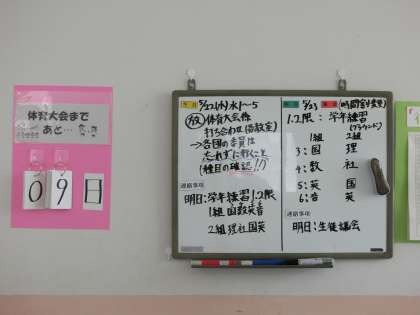 体育大会まで
あと…
09日
今日 5/22(水)水1~5
放 体育大会係
打ち合わせ(各教室)
→各団の委員は
忘れずに行くこと
(種目の確認)!!
連絡事項
明日:学年練習1.2限
1組 国数英音
2組 理社国英
5/23
(時間割変更)
1.2限:学年練習
(グラウンド)
1組 2組
3:国 理
4:数 社
5:英 国
6:音 英
連絡事項
明日:生徒議会